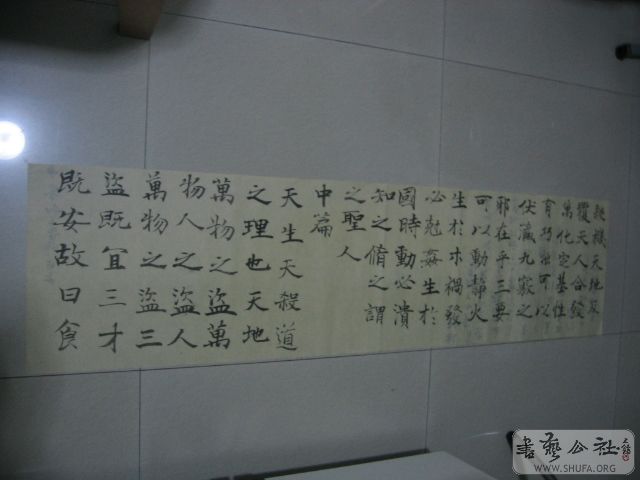 殺機天地反
覆天人合發
萬化定基性
有巧拙可以
伏藏九竅之
邪在乎三要
可以動靜火
生於木禍發
必尅姦生於
國時動必潰
知之脩之謂
之聖人
中篇
天生天殺道
之理也天地
萬物之盜萬
物人之盜人
萬物之盜三
盜既宜三才
既安故曰食
書藝公社
WWW.SHUFA.ORG